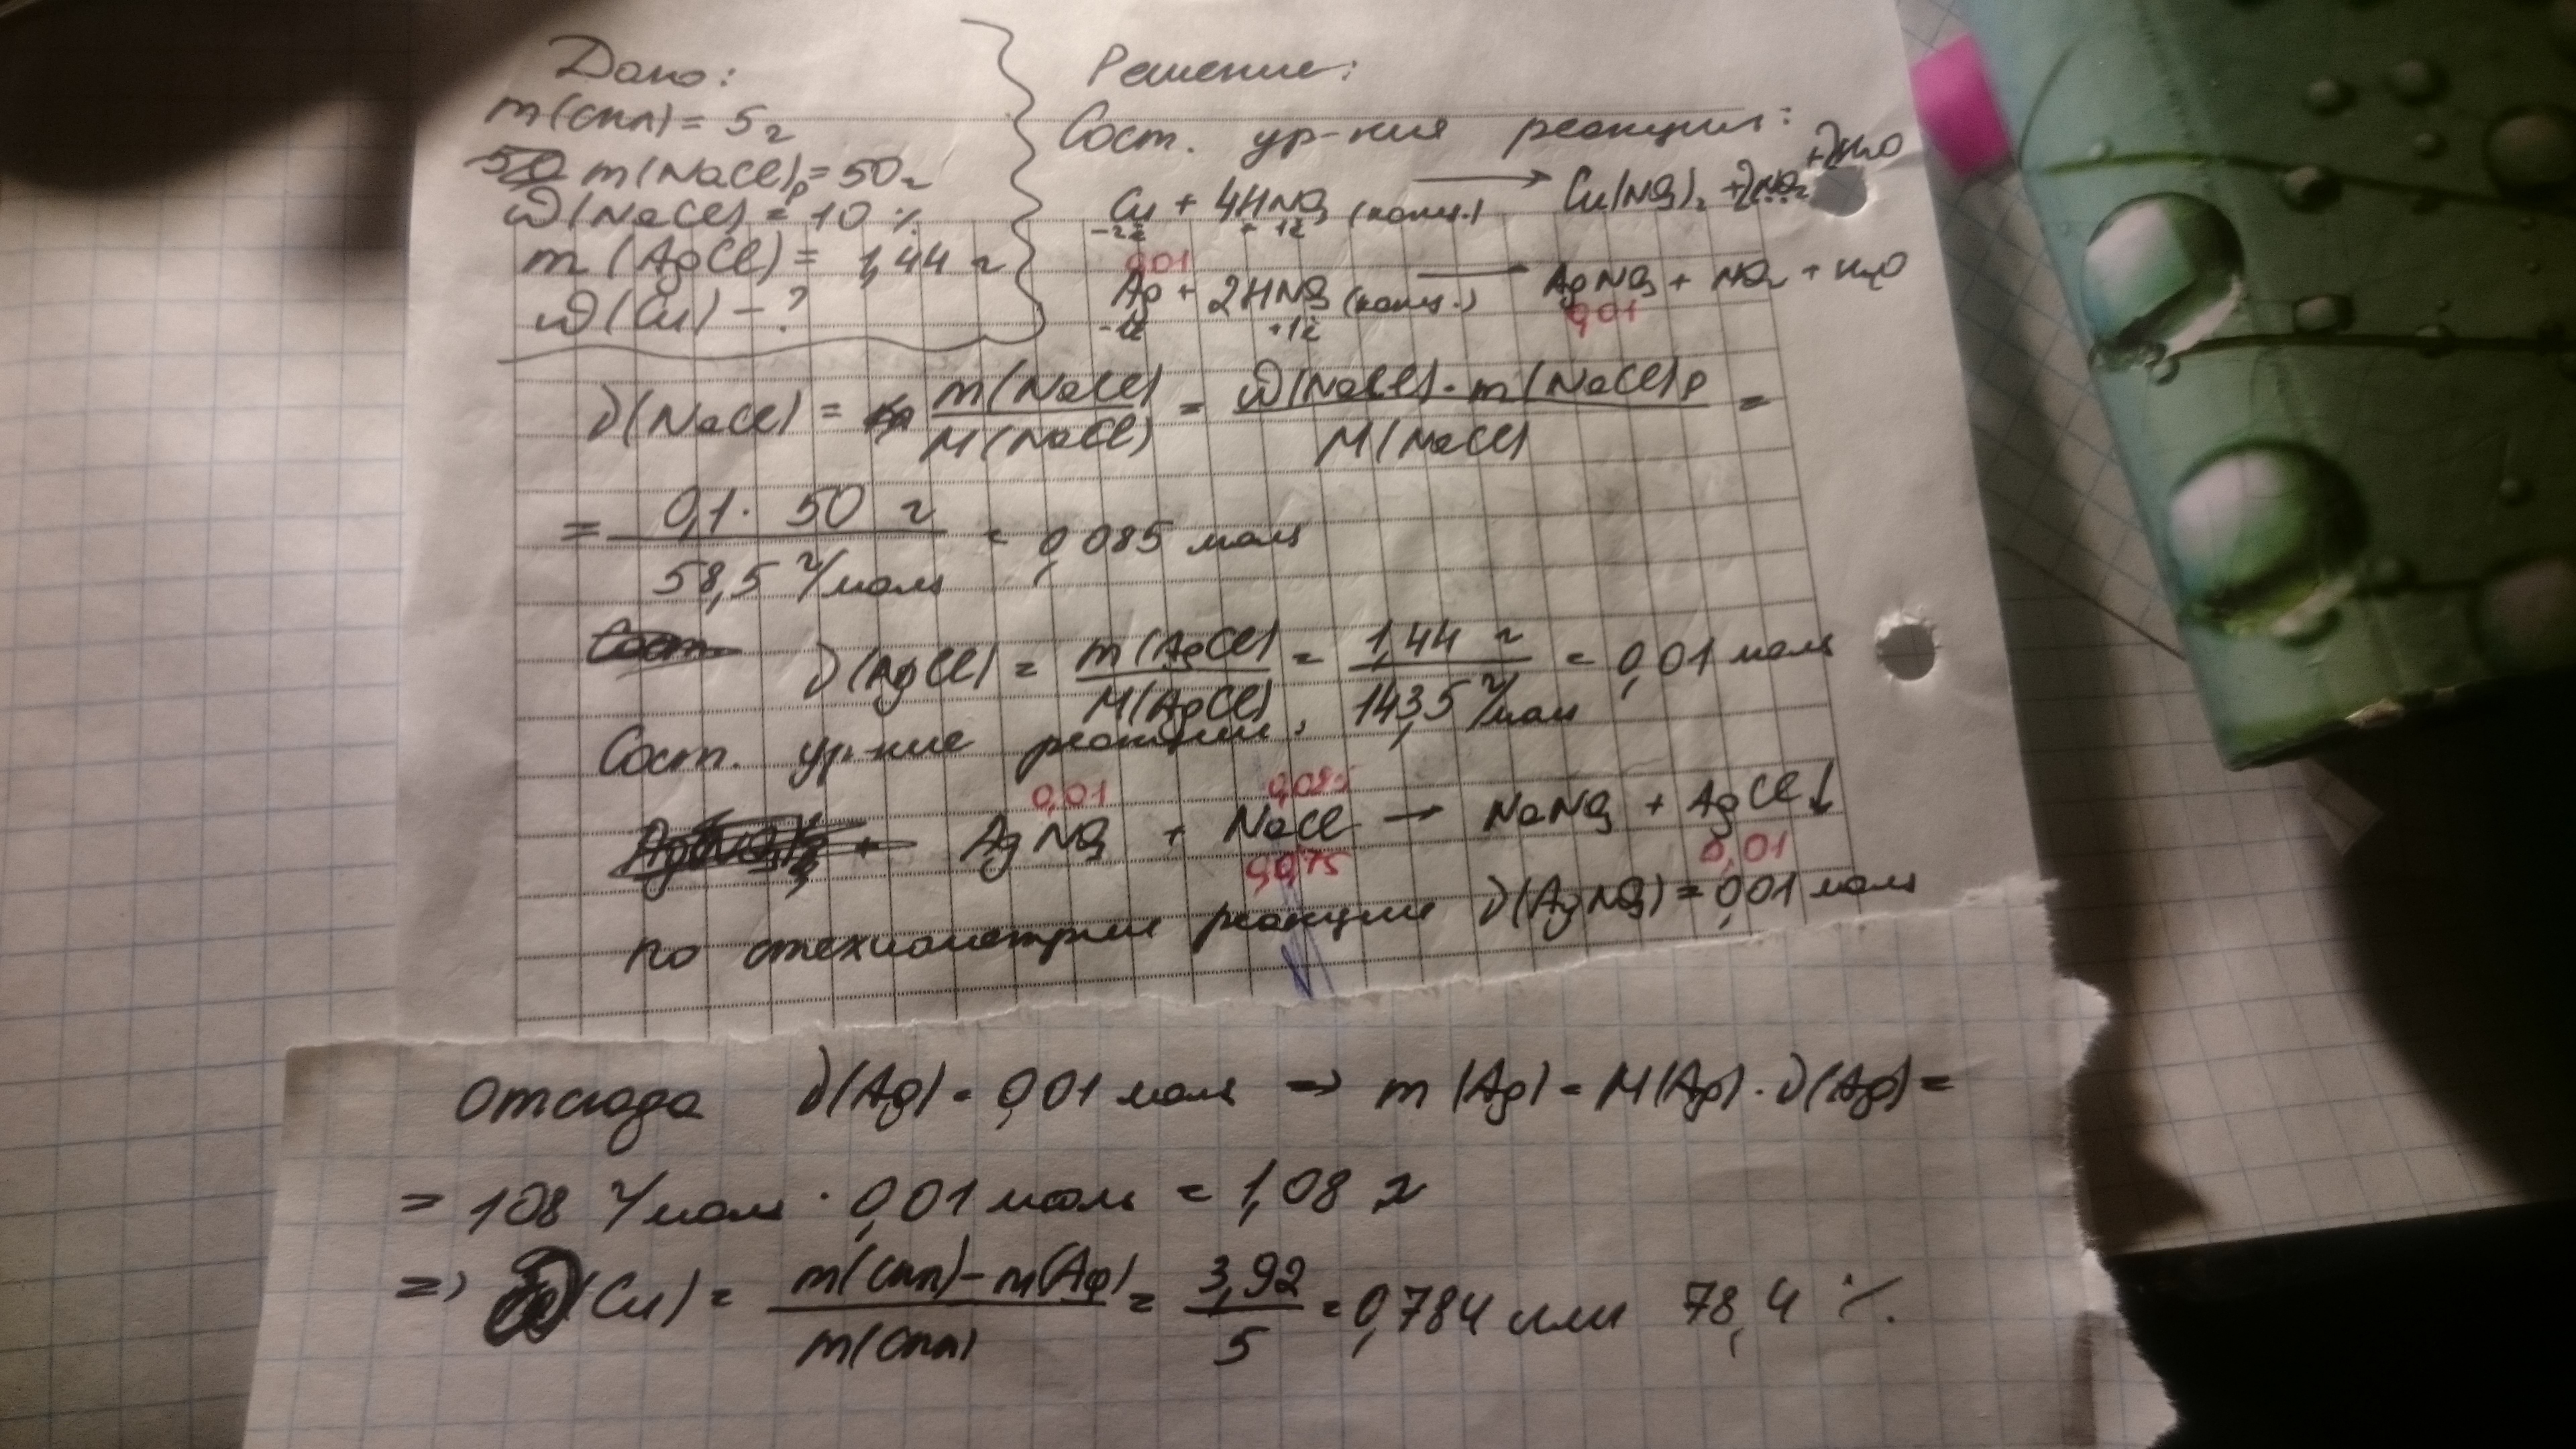 Дано:
m(спл) = 5г
m(NaCl)р = 50г
ω(NaCl) = 10%
m(AgCl) = 1,44 г
ω(Cu) - ?
Решение:
Сост. ур-ния реакции:
Cu + 4HNO3 (конц.) → Cu(NO3)2 + 2NO2 + 2H2O
-2ē +1ē
0,01
Ag + 2HNO3 (конц.) → AgNO3 + NO2 + H2O
-1ē +1ē 0,01
ν(NaCl) = m(NaCl)/M(NaCl) = ω(NaCl)·m(NaCl)р/M(NaCl) =
= 0,1 · 50 г/58,5 г/моль = 0,085 моль
Сост. ν(AgCl) = m(AgCl)/M(AgCl) = 1,44 г/143,5 г/моль = 0,01 моль
Сост. ур-ние реакции:
0,01 0,085
+ AgNO3 + NaCl → NaNO3 + AgCl↓
0,075 0,01
по стехиометрии реакции ν(AgNO3) = 0,01 моль
Отсюда ν(Ag) = 0,01 моль => m(Ag) = M(Ag)·ν(Ag) =
= 108 г/моль · 0,01 моль = 1,08 г
=> ω(Cu) = m(спл) - m(Ag)/m(спл) = 3,92/5 = 0,784 или 78,4 %.